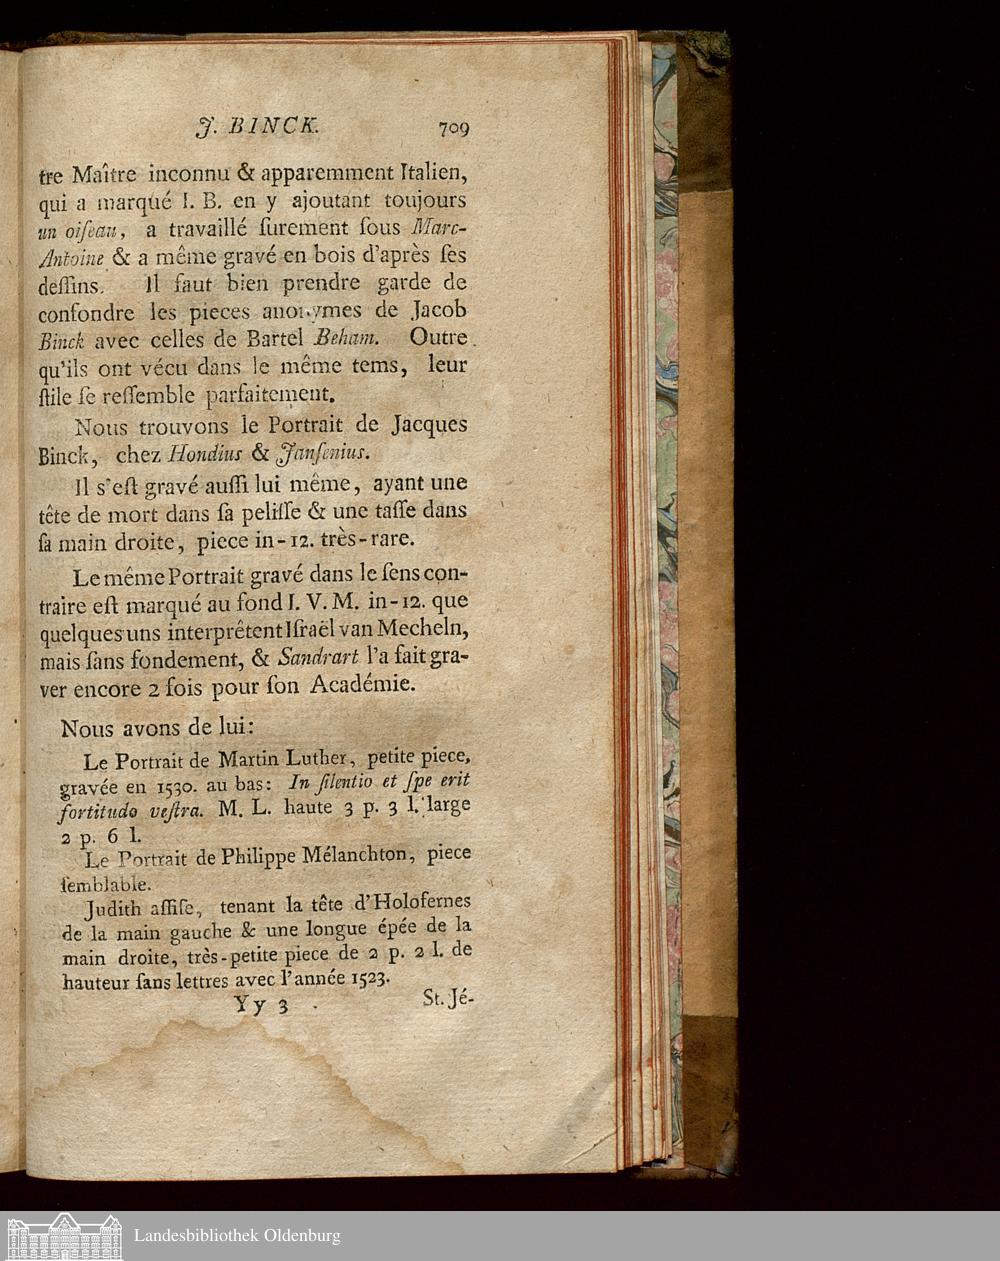 J. BINCK. 709
tre Maître inconnu & apparemment Italien,
qui a marqué I. B. en y ajoutant toujours
un oiſeau, a travaillé ſurement ſous Marc-
Antoine & a même gravé en bois d'après ſes
deſſins. Il faut bien prendre garde de
confondre les pieces anonymes de Jacob
Binck avec celles de Bartel Beham. Outre
qu'ils ont vécu dans le même tems, leur
ſtile ſe reſſemble parfaitement.
Nous trouvons le Portrait de Jacques
Binck, chez Hondius & Janſenius.
Il s'eſt gravé auſſi lui même, ayant une
tête de mort dans ſa peliſſe & une taſſe dans
ſa main droite, piece in-12. très-rare.
Le même Portrait gravé dans le ſens con-
traire eſt marqué au fond I. V. M. in-12. que
quelques uns interprêtent Iſraël van Mecheln,
mais ſans fondement, & Sandrart l'a fait gra-
ver encore 2 fois pour ſon Académie.
Nous avons de lui:
Le Portrait de Martin Luther, petite piece,
gravée en 1530. au bas: In ſilentio et ſpe erit
fortitudo veſtra. M. L. haute 3 p. 3 l. large
2 p. 6 l.
Le Portrait de Philippe Mélanchton, piece
ſemblable.
Judith aſſiſe, tenant la tête d'Holofernes
de la main gauche & une longue épée de la
main droite, très-petite piece de 2 p. 2 l. de
hauteur ſans lettres avec l'année 1523.
Yy 3 St. Jé-
Landesbibliothek Oldenburg